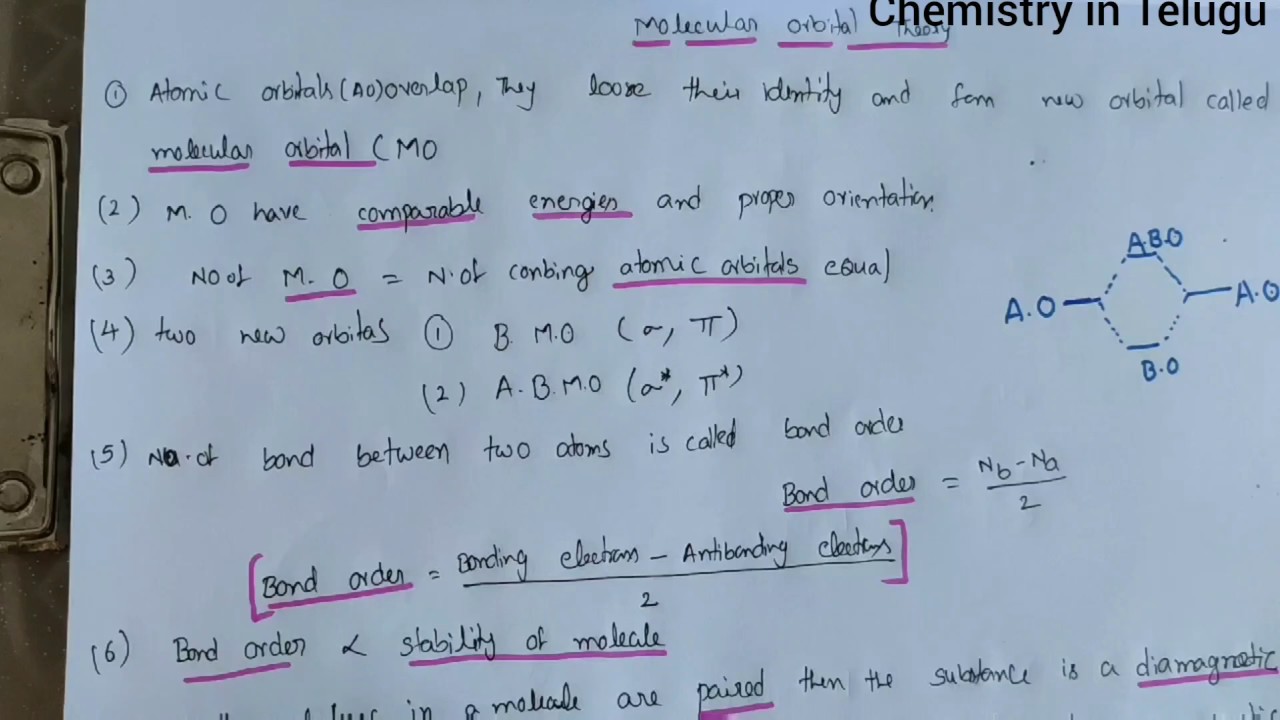 Chemistry in Telugu
Molecular orbital Theory
① Atomic orbitals (AO) overlap, They loose their identity and form new orbital called
molecular orbital (MO
(2) M. O have comparable energies and proper orientation.
(3) No of M. O = N. of conbing atomic orbitals equal
(4) two new orbitas ① B. M.O (σ, π)
(2) A. B. M.O (σ*, π*)
A.B.O
A.O A.O
B.O
(5) No. of bond between two atoms is called bond order
Bond order = Nb - Na / 2
[Bond order = Bonding electrons - Antibonding electrons / 2]
(6) Bond order ∝ stability of molecule
in a molecule are paired then the substance is a diamagnetic